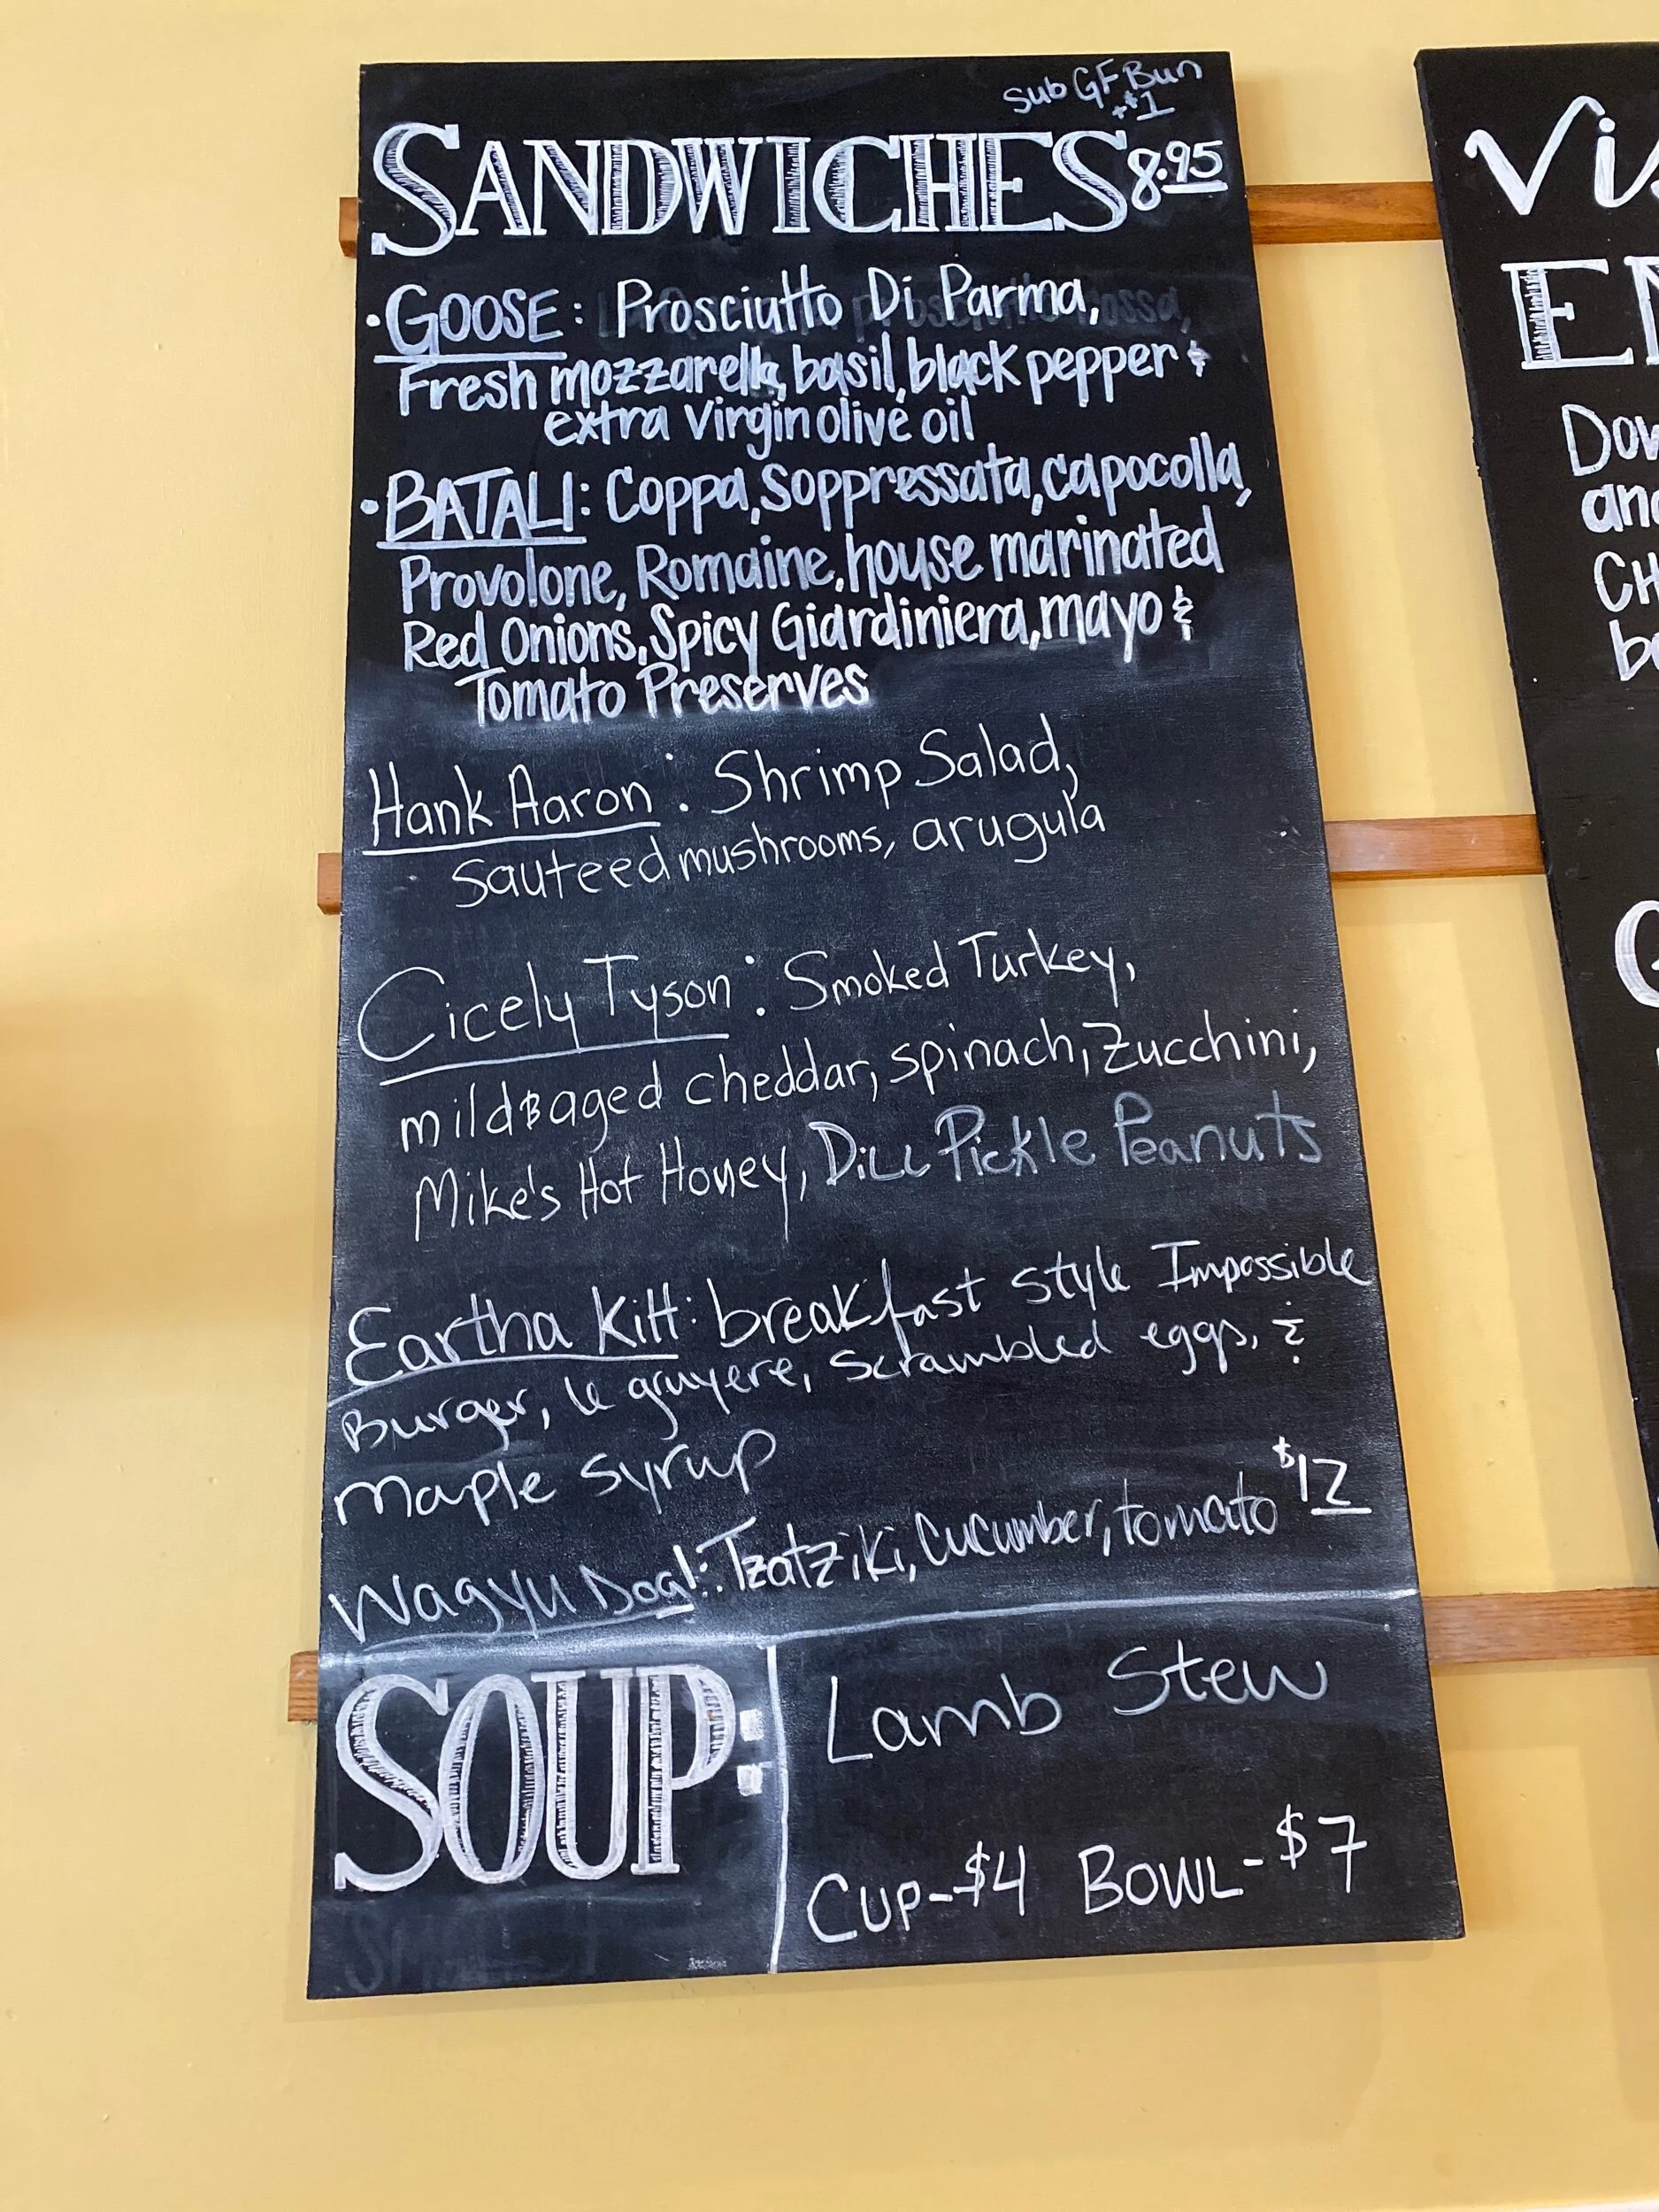 Sub GF Bun
+$1
SANDWICHES 8.95
• GOOSE: Prosciutto Di Parma,
Fresh mozzarella, basil, black pepper &
extra virgin olive oil
• BATALI: Coppa, Soppressata, capocolla,
Provolone, Romaine, house marinated
Red Onions, Spicy Giardiniera, mayo &
Tomato Preserves
Hank Aaron: Shrimp Salad,
Sauteed mushrooms, arugula
Cicely Tyson: Smoked Turkey,
mild & aged cheddar, spinach, zucchini,
Mike's Hot Honey, Dill Pickle Peanuts
Eartha Kitt: breakfast style Impossible
Burger, le gruyere, scrambled eggs, &
Maple syrup
Wagyu Dog!: Tzatziki, Cucumber, tomato $12
SOUP:
Lamb Stew
Cup-$4 Bowl-$7